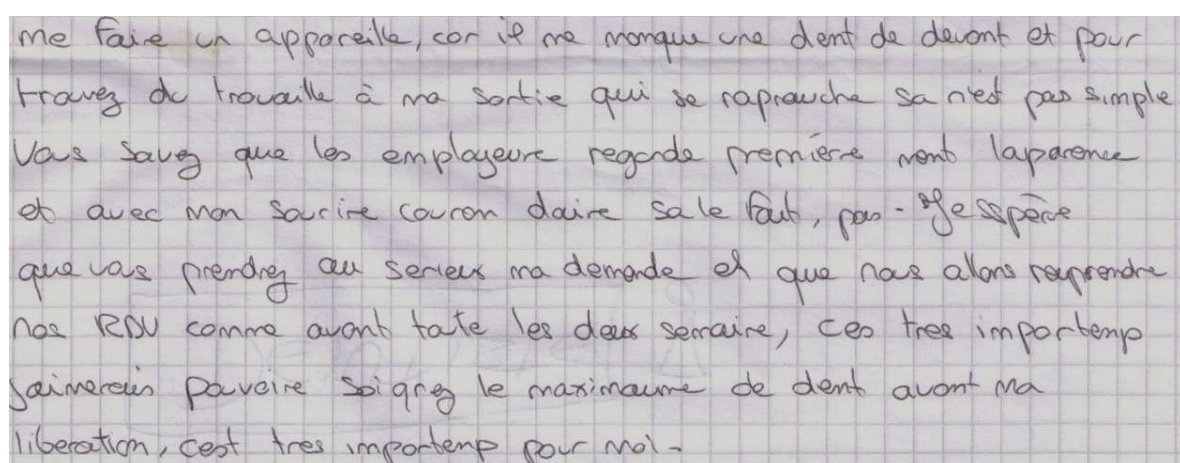 me faire un appareille, car il me manque une dent de devant et pour
travez du travaille à ma sortie qui se raprauche sa n'est pas simple
Vous savez que les employeure regarde première ment laparence
et avec mon sourire couron daire sa le fait, pas - Jesspère
que vous prendrez au serieux ma demande et que nous allons reuprendre
nos RDV comme avant toute les deux semaire, ces tres importemp
jaimerais pouvoire soignez le maximaume de dent avant ma
liberation, cest tres importemp pour moi -